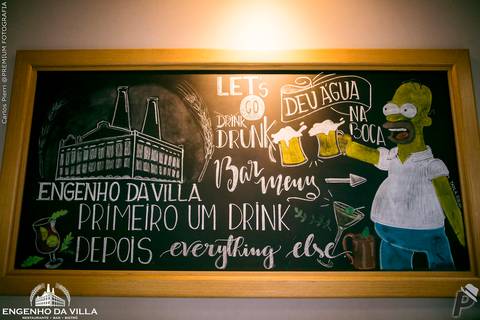 LET's
GO
DRINK
DRUNK
Bar menu
DEU ÁGUA
NA
BOCA
ENGENHO DA VILLA
PRIMEIRO UM DRINK
DEPOIS everything else
ENGENHO DA VILLA
RESTAURANTE • BAR • BISTRÔ
Carlos Pierri @PREMIUM FOTOGRAFIA